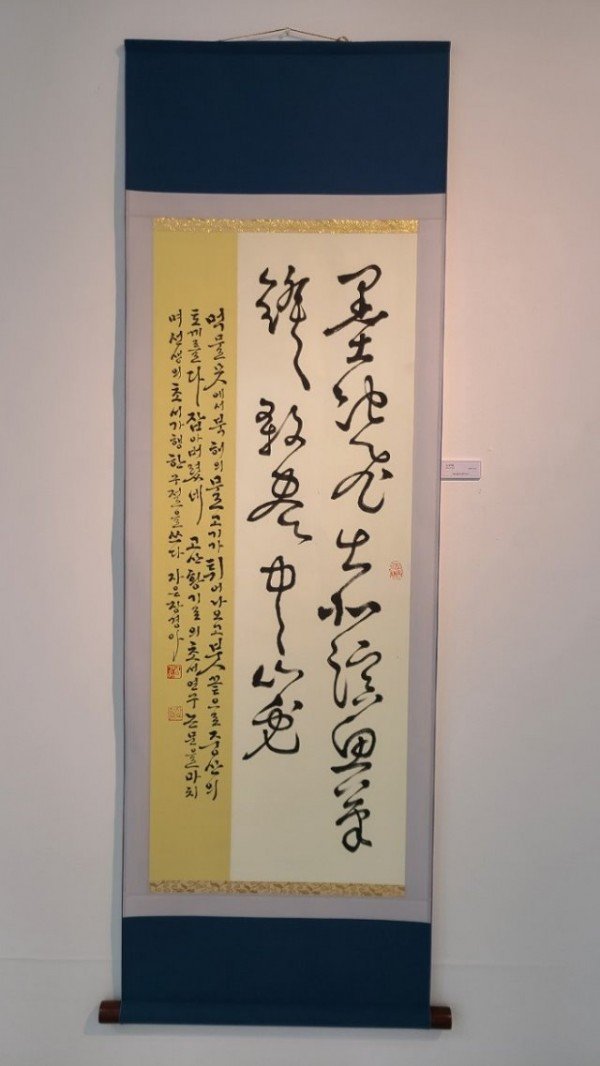 墨池飛出北溟魚筆
鋒殺盡中山兔
먹물 못에서 북해의 물고기가 튀어나오고 붓끝으로 중산의
토끼를 다 잡아버렸네 고산 황기로의 초서연구 논문을 마치
며 선생의 초서가행 한 구절을 쓰다